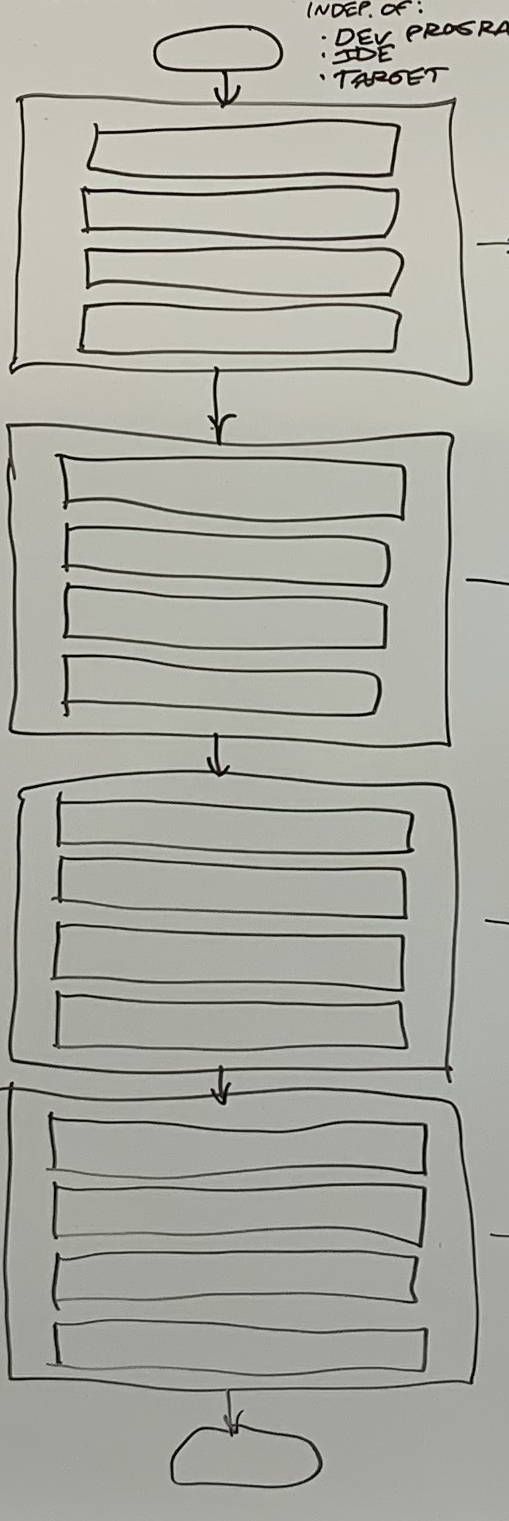 INDEP. OF:
· DEV PROGRA
· IDE
· TARGET